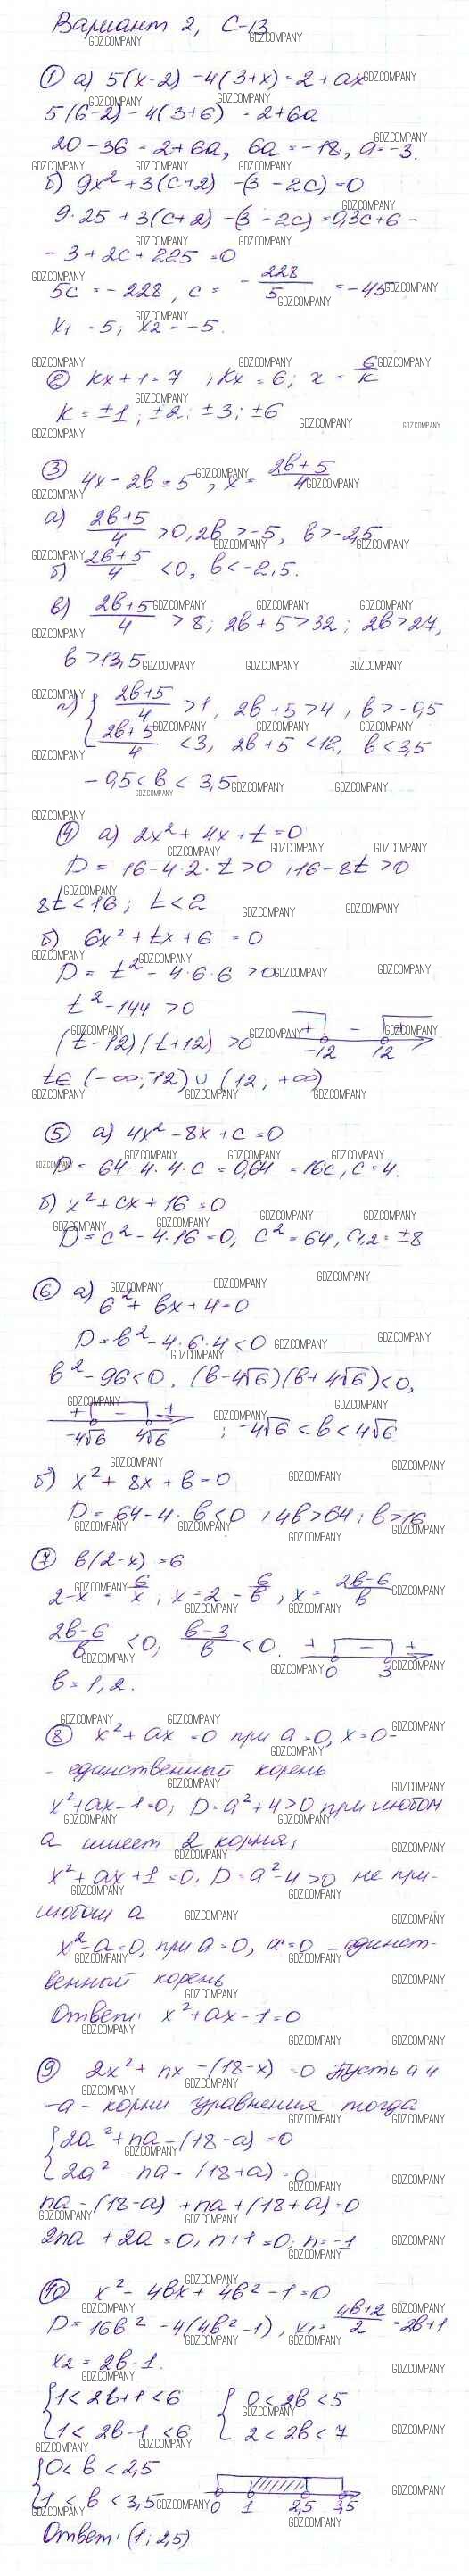 Вариант 2, С-13
① а) 5(x-2) -4(3+x) = 2+ax
5(6-2) - 4(3+6) = 2+6a
20-36 = 2+6a, 6a = -18, a = -3.
б) 9x² + 3(c+2) -(3-2c) = 0
9·25 + 3(c+2) -(3-2c) = 0, 3c+6-
-3+2c+225 = 0
5c = -228, c = -228/5 = -45
x₁ = 5; x₂ = -5.
② kx+1=7, kx=6; x = 6/k
k = ±1; ±2; ±3; ±6
③ 4x-2b=5, x = (2b+5)/4
а) (2b+5)/4 >0, 2b>-5, b>-2,5
б) (2b+5)/4 <0, b<-2,5.
в) (2b+5)/4 >8; 2b+5>32; 2b>27,
b>13,5
г) { (2b+5)/4 >1, 2b+5>4, b>-0,5
(2b+5)/4 <3, 2b+5<12, b<3,5
-0,5<b<3,5
④ а) 2x²+4x+t=0
D = 16-4·2·t>0, 16-8t>0
8t<16; t<2
б) 6x²+tx+6=0
D = t²-4·6·6>0
t²-144>0
(t-12)(t+12)>0 + - + -12 12
t∈(-∞;-12)∪(12,+∞)
⑤ а) 4x²-8x+c=0
D = 64-4·4·c=0, 64=16c, c=4.
б) x²+cx+16=0
D=c²-4·16=0, c²=64, c₁,₂=±8
⑥ а) 6²+bx+4=0
D=b²-4·6·4<0
b²-96<0, (b-4√6)(b+4√6)<0,
+ - + -4√6 4√6 ; -4√6<b<4√6
б) x²+8x+b=0
D=64-4·b<0, 4b>64; b>16
⑦ b(2-x)=6
2-x = 6/x; x=2-6/b, x=(2b-6)/b
(2b-6)/b <0; (b-3)/b <0. + - + 0 3
b=1; 2.
⑧ x²+ax=0 при a=0, x=0-
- единственный корень
x²+ax-1=0; D=a²+4>0 при любом
a имеет 2 корня;
x²+ax+1=0, D=a²-4>0 не при-
любом a
x²-a=0, при a=0, x=0 - единст-
венный корень
Ответ: x²+ax-1=0
⑨ 2x²+nx-(18-x)=0 Пусть a и
-a - корни уравнения тогда
{ 2a²+na-(18-a)=0
2a²-na-(18+a)=0
na-(18-a)+na+(18+a)=0
2na+2a=0, n+1=0; n=-1
⑩ x²-4bx+4b²-1=0
D=16b²-4(4b²-1), x₁=(4b+2)/2=2b+1
x₂=2b-1.
{ 1<2b+1<6 { 0<2b<5
1<2b-1<6 2<2b<7
{ 0<b<2,5
1<b<3,5 0 1 2,5 3,5
Ответ: (1; 2,5)
GDZ.COMPANY